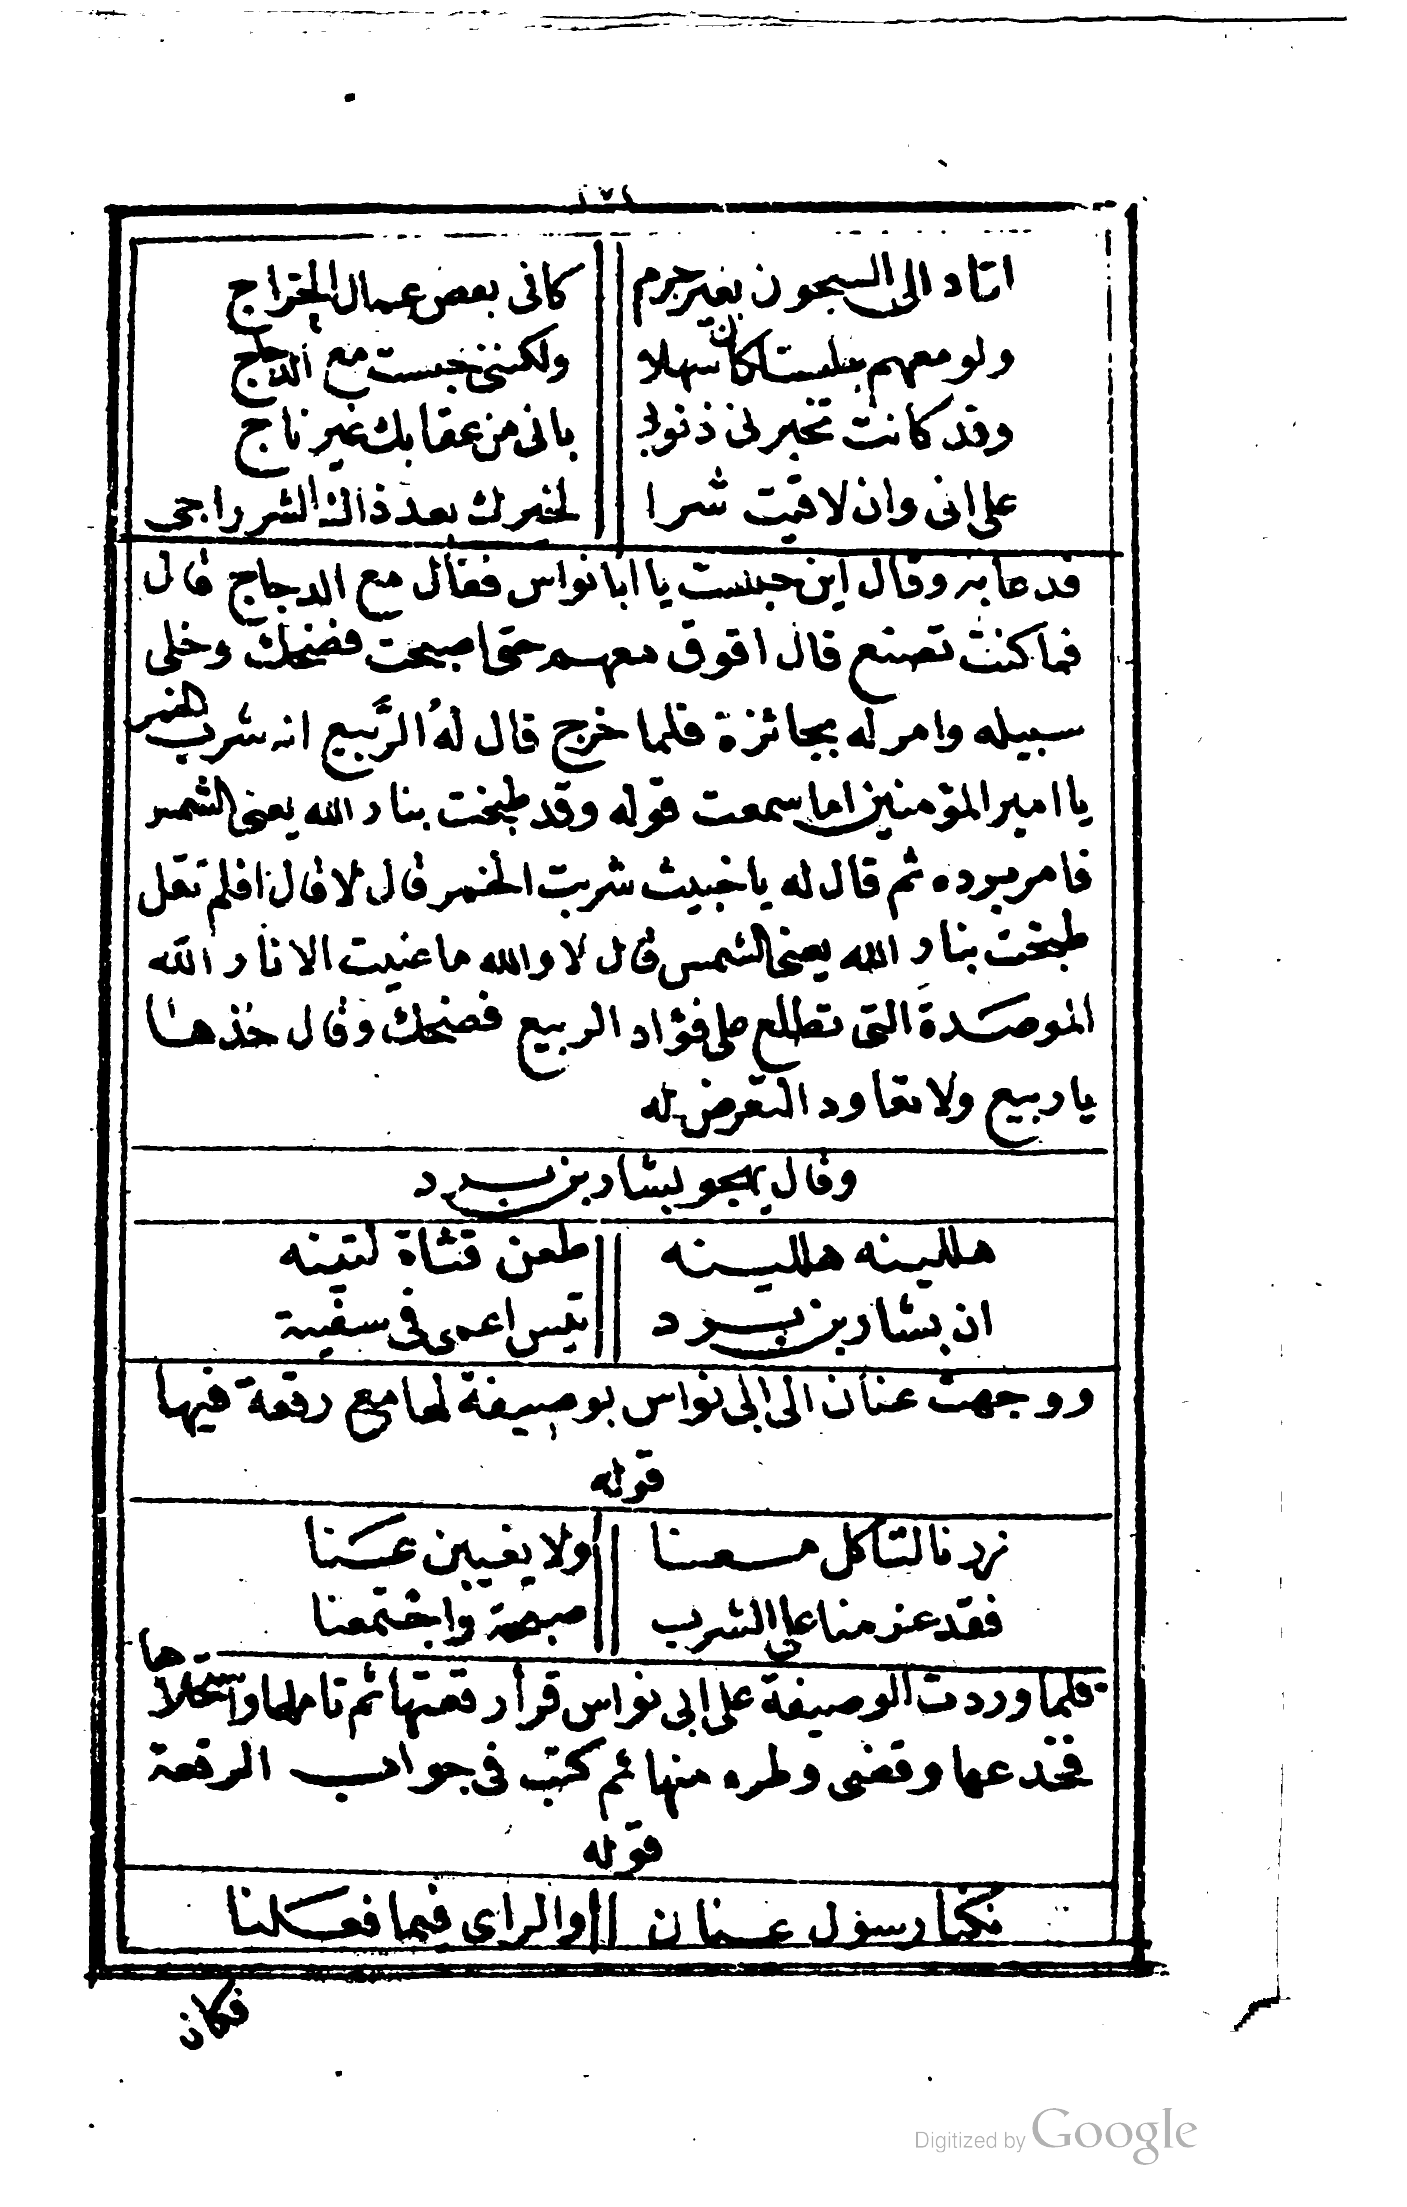 ١٧١
اتاد الى السجون بغير جرم كانى بعض عمال الخراج
ولو معهم حبست لكان سهلا ولكننى حبست مع الدجاج
وقد كانت تخبرنى ذنوبى بانى من عقابك غير ناج
على انى وان لاقيت شرا لخيرك بعد ذاك الشر راجى
فدعا به وقال اين حبست يا ابا نواس فقال مع الدجاج قال
فما كنت تصنع قال اقوق معهم حتى اصبحت فضحك وخلى
سبيله وامر له بجائزة فلما خرج قال له الربيع انه شرب الخمر
يا امير المؤمنين اما سمعت قوله وقد طبخت بنار الله يعنى الشمس
فامر برده ثم قال له يا خبيث شربت الخمر قال لا قال افلم تقل
طبخت بنار الله يعنى الشمس قال لا والله ما عنيت الا نار الله
الموصدة التى تطلع على فؤاد الربيع فضحك وقال خذها
يا ربيع ولا تعاود التعرض له
وقال يهجو بشار بن برد
هللينه هللينه طعن قثاة لتينه
ان بشار بن برد تيس اعمى فى سفينة
ووجهت عنان الى ابى نواس بوصيفة لها مع رقعة فيها
قوله
زرنا لتاكل معنا ولا تغيبن عنا
فقد عزمنا على الشرب صبحة واجتمعنا
فلما وردت الوصيفة على ابى نواس قرأ رقعتها ثم تاملها واستحلاها
فخدعها وقضى وطره منها ثم كتب فى جواب الرقعة
قوله
نكنا رسول عنان والراى فيما فعلنا
فكان
Digitized by Google